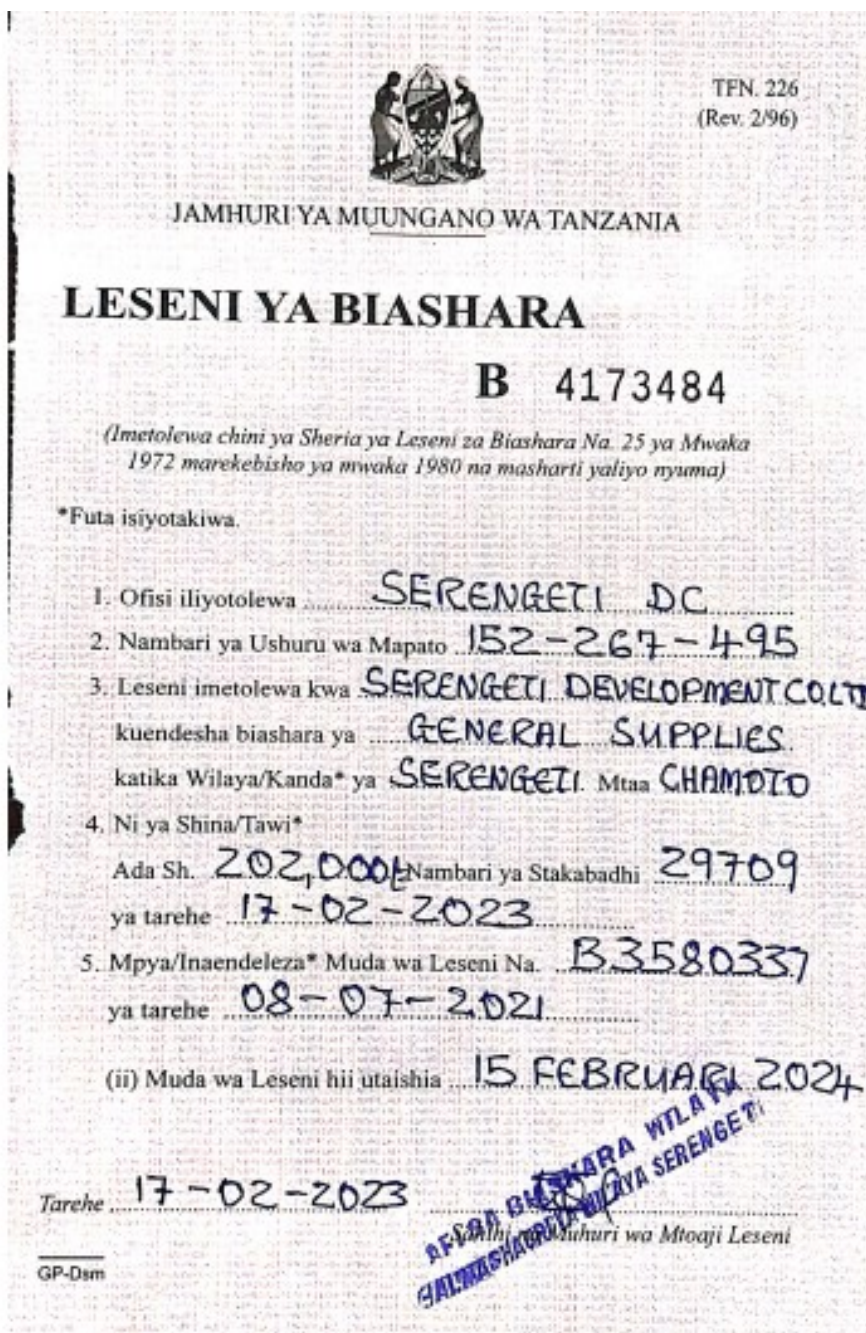 TFN. 226
(Rev. 2/96)
JAMHURI YA MUUNGANO WA TANZANIA
LESENI YA BIASHARA
B 4173484
(Imetolewa chini ya Sheria ya Leseni za Biashara Na. 25 ya Mwaka
1972 marekebisho ya mwaka 1980 na masharti yaliyo nyuma)
*Futa isiyotakiwa.
1. Ofisi iliyotolewa SERENGETI DC
2. Nambari ya Ushuru wa Mapato 152-267-495
3. Leseni imetolewa kwa SERENGETI DEVELOPMENT CO.LTD
kuendesha biashara ya GENERAL SUPPLIES
katika Wilaya/Kanda* ya SERENGETI Mtaa CHAMOTO
4. Ni ya Shina/Tawi*
Ada Sh. 202,000/= Nambari ya Stakabadhi 29709
ya tarehe 17-02-2023
5. Mpya/Inaendeleza* Muda wa Leseni Na. B3580337
ya tarehe 08-07-2021
(ii) Muda wa Leseni hii utaishia 15 FEBRUARI 2024
Tarehe 17-02-2023
AFISA BIASHARA WILAYA
HALMASHAURI YA WILAYA SERENGETI
Sahihi na Muhuri wa Mtoaji Leseni
GP-Dsm